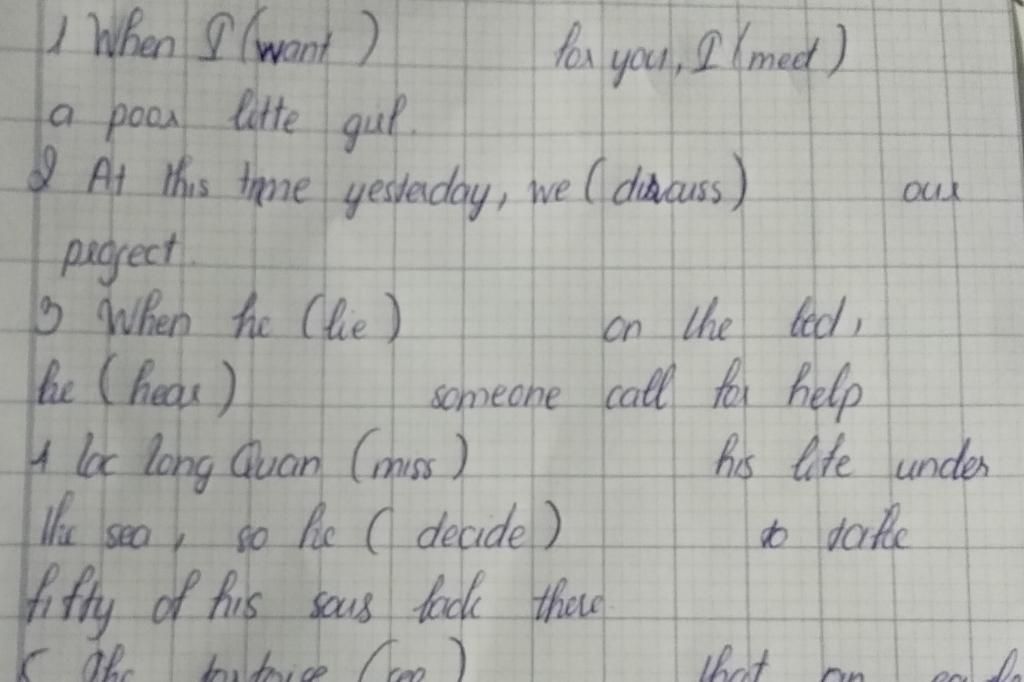 1 When I (want) for you, I (meet)
a poor litte girl.
2 At this time yesterday, we (discuss) our
project.
3 When he (lie) on the bed,
he (hear) someone call for help
4 Lac Long Quan (miss) his life under
the sea, so he (decide) to take
fifty of his sons back there.
5 The tortoise (see) that an